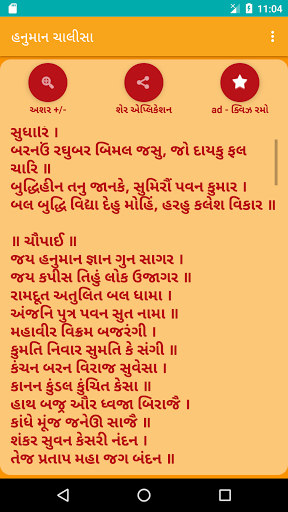 11:04
હનુમાન ચાલીસા
અક્ષર +/-
શેર એપ્લિકેશન
ad - ક્વિઝ રમો
સુધારિ ।
બરનઉઁ રઘુબર બિમલ જસુ, જો દાયકુ ફલ
ચારિ ॥
બુદ્ધિહીન તનુ જાનકે, સુમિરૌં પવન કુમાર ।
બલ બુદ્ધિ વિદ્યા દેહુ મોહિં, હરહુ કલેશ વિકાર ॥
॥ ચૌપાઈ ॥
જય હનુમાન જ્ઞાન ગુન સાગર ।
જય કપીસ તિહું લોક ઉજાગર ॥
રામદૂત અતુલિત બલ ધામા ।
અંજનિ પુત્ર પવન સુત નામા ॥
મહાવીર વિક્રમ બજરંગી ।
કુમતિ નિવાર સુમતિ કે સંગી ॥
કંચન બરન વિરાજ સુવેસા ।
કાનન કુંડલ કુંચિત કેસા ॥
હાથ બજ્ર ઔર ધ્વજા બિરાજૈ ।
કાંધે મૂંજ જનેઊ સાજૈ ॥
શંકર સુવન કેસરી નંદન ।
તેજ પ્રતાપ મહા જગ બંદન ॥